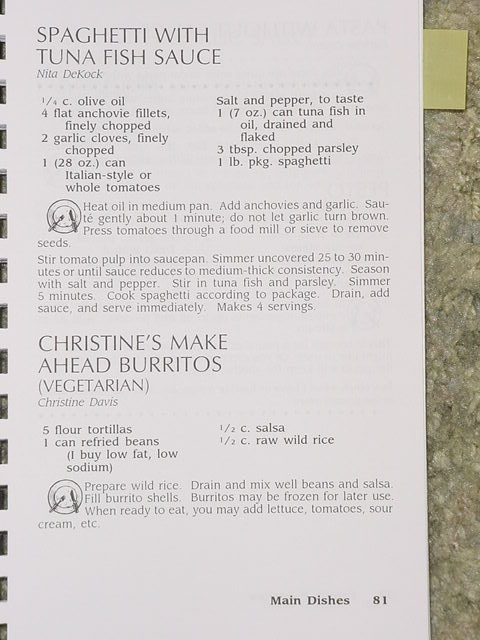 SPAGHETTI WITH
TUNA FISH SAUCE
Nita DeKock
1/4 c. olive oil
4 flat anchovie fillets,
finely chopped
2 garlic cloves, finely
chopped
1 (28 oz.) can
Italian-style or
whole tomatoes
Salt and pepper, to taste
1 (7 oz.) can tuna fish in
oil, drained and
flaked
3 tbsp. chopped parsley
1 lb. pkg. spaghetti
Heat oil in medium pan. Add anchovies and garlic. Sau-
té gently about 1 minute; do not let garlic turn brown.
Press tomatoes through a food mill or sieve to remove
seeds.
Stir tomato pulp into saucepan. Simmer uncovered 25 to 30 min-
utes or until sauce reduces to medium-thick consistency. Season
with salt and pepper. Stir in tuna fish and parsley. Simmer
5 minutes. Cook spaghetti according to package. Drain, add
sauce, and serve immediately. Makes 4 servings.
CHRISTINE'S MAKE
AHEAD BURRITOS
(VEGETARIAN)
Christine Davis
5 flour tortillas
1 can refried beans
(I buy low fat, low
sodium)
1/2 c. salsa
1/2 c. raw wild rice
Prepare wild rice. Drain and mix well beans and salsa.
Fill burrito shells. Burritos may be frozen for later use.
When ready to eat, you may add lettuce, tomatoes, sour
cream, etc.
Main Dishes 81